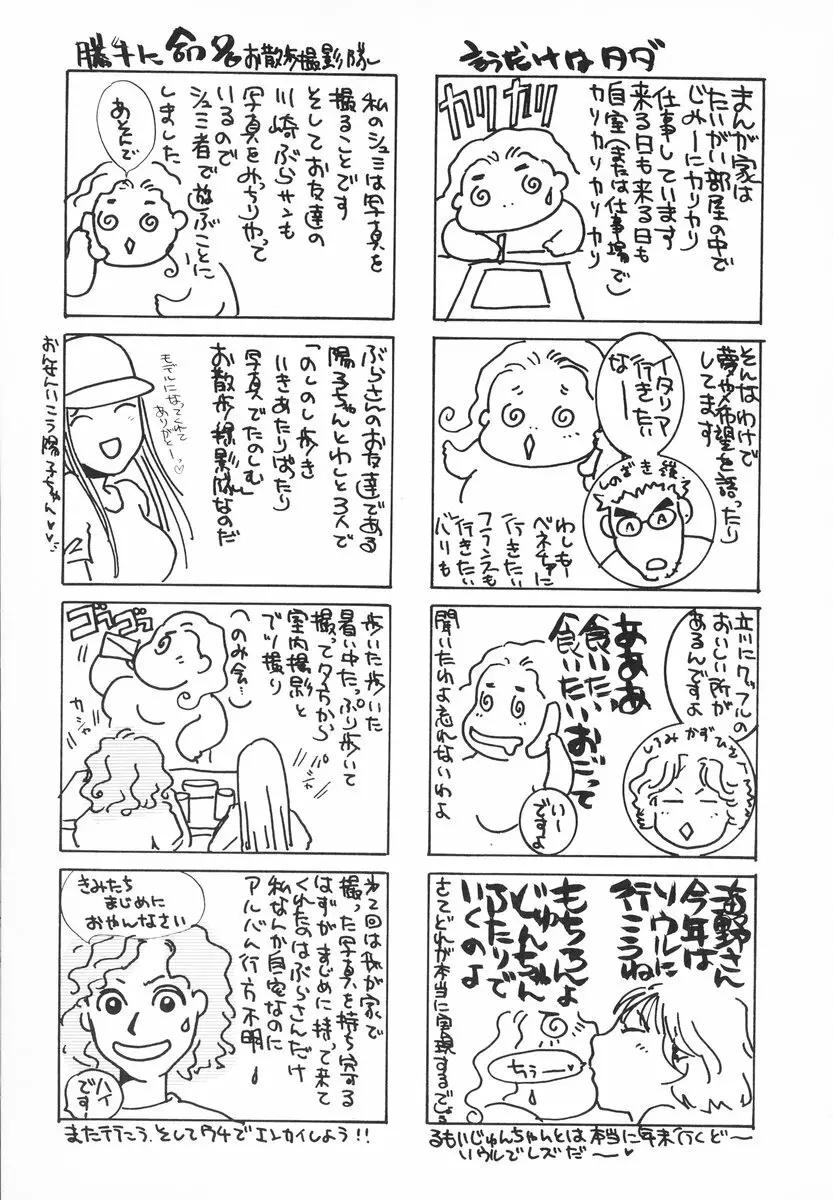 言うだけはタダ
まんが家は
たいがい部屋の中で
じみーにカリカリ
仕事しています
来る日も来る日も
自室(または仕事場で)
カリカリカリカリ
カリカリ
そんなわけで
夢や希望を語ったり
してます
イタリア
行きたい
なーー
しのざき
わしもー
ベネチアに
行きたい
フランスも
行きたい
パリも
立川にワッフルの
おいしい所が
あるんですよ
かずひさ
あああ
食いたい
食いたいおごって
聞いたわよ忘れないわよ
いー
ですよ
海野さん
今年は
ソウルに
行こうね
もちろんよ
じゅんちゃん
ふたりで
いくのよ
ちぅー
さてどれが本当に実現するでしょ
るもいじゅんちゃんとは本当に年末行くど〜
ソウルでレズだ〜♥
勝手に命名お散歩撮影隊
私のシュミは写真を
撮ることです
そしてお友達の
川崎ぶらサンも
写真をみっちりやって
いるので
シュミ者で遊ぶことに
しました
あそんで
ぶらさんのお友達である
陽子ちゃんとわしと3人で
「のしのし歩き
いきあたりばったり
写真でたのしむ
お散歩撮影隊」なのだ
モデルになってくれて
ありがとー♡
おんせんいこう陽子ちゃん♥♥
歩いた歩いた
暑い中たっぷり歩いて
撮って夕方から
室内撮影と
でバリ撮り
(のみ会…)
ゴッゴッ
カシャ
次回はわが家で
撮った写真を持ち寄る
はずがまじめに持って来て
くれたのはぶらさんだけ
私なんか自宅なのに
アルバム行方不明
きみたち
まじめに
おやんなさい
ハイ
です
また行こう、そしてウチでエンカイしよう!!